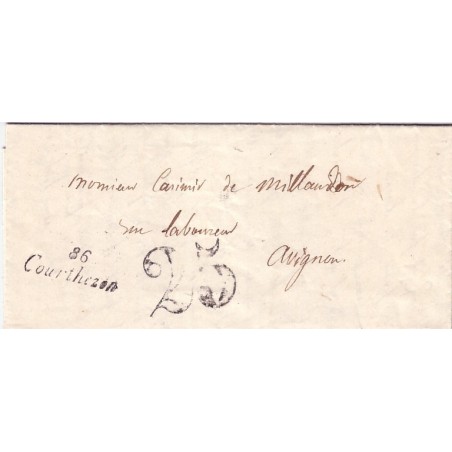 monsieur Casimir de Millaudon
rue laboureur
avignon
86
Courthezon
25